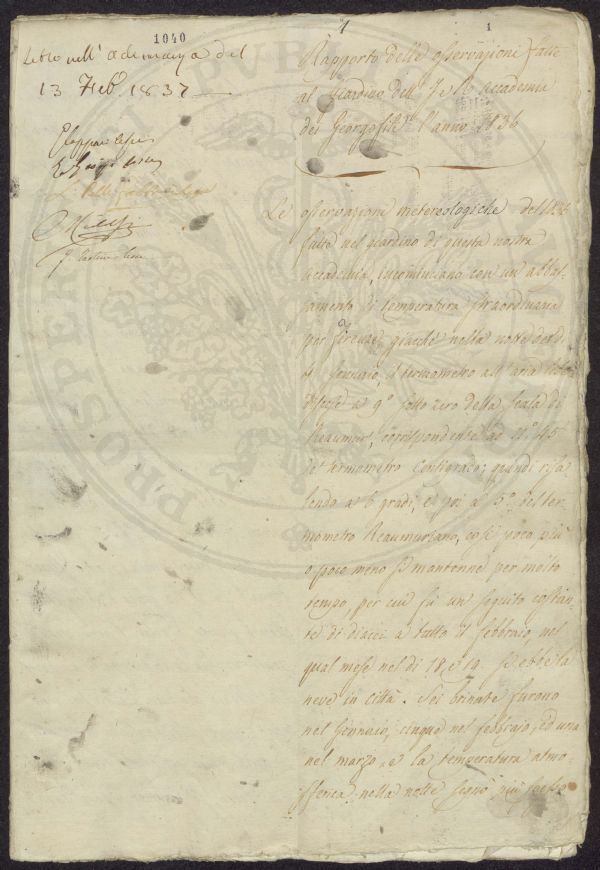 1040
Letto nell' Adunanza del
13 Feb. 1837
1
1
Rapporto delle osservazioni fatte
al Giardino dell' I e R Accademia
dei Georgofili l'anno 1836
Le osservazioni metereologiche dell' 1836
fatte nel giardino di questa nostra
Accademia, incominciano con un abbas-
samento di temperatura straordinaria
per Firenze, giacché nella notte del dì
Gennaio, il termometro all' aria libera
discese a 9° sotto zero della scala di
Reaumur, corrispondente ad 11° 45
del termometro Centigrado; quindi risa-
lendo a 6 gradi, e poi a 5° del ter-
mometro Reaumuriano, così poco più
o poco meno si mantenne per molto
tempo, per cui fu un seguito costan-
te di diacci a tutto il febbraio, nel
qual mese nel dì 18, e 19 si ebbe la
neve in città. Sei brinate furono
nel Gennaio, cinque nel febbraio, ed una
nel marzo, e la temperatura atmo-
sferica nella notte segnò più spesso
PROSPERITÀ PUBBLICA